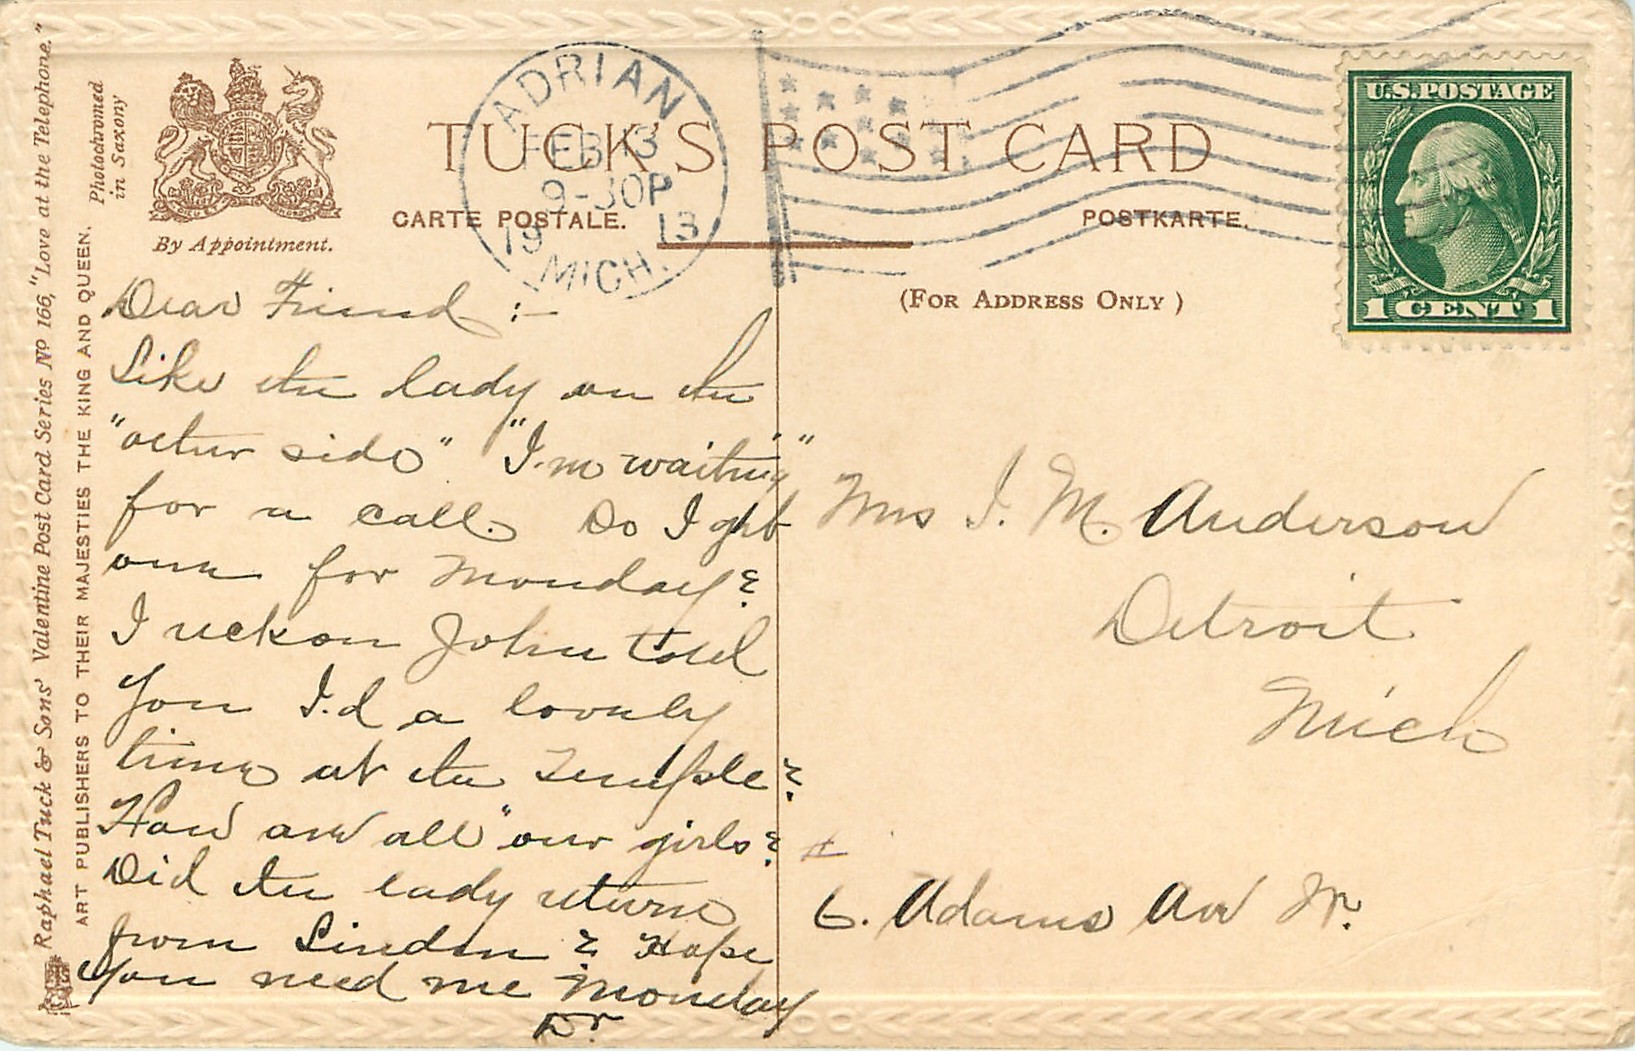 Raphael Tuck & Sons' Valentine Post Card Series No 166, "Love at the Telephone."
ART PUBLISHERS TO THEIR MAJESTIES THE KING AND QUEEN.
Photochromed
in Saxony
By Appointment.
TUCK'S POST CARD
CARTE POSTALE.
POSTKARTE.
(FOR ADDRESS ONLY)
ADRIAN
FEB 13
9-30P
1913
MICH.
U.S. POSTAGE
1 CENT 1
Dear Friend :-
Like the lady on the
"other side" "I'm waiting"
for a call. Do I get
one for Monday?
I reckon John told
you I'd a lovely
time at the Temple?
How are all "our girls?
Did the lady return
from Linden? Hope
you need me Monday
Dr.
Mrs I. M. Anderson
Detroit
Mich
#
6. Adams Ave W.